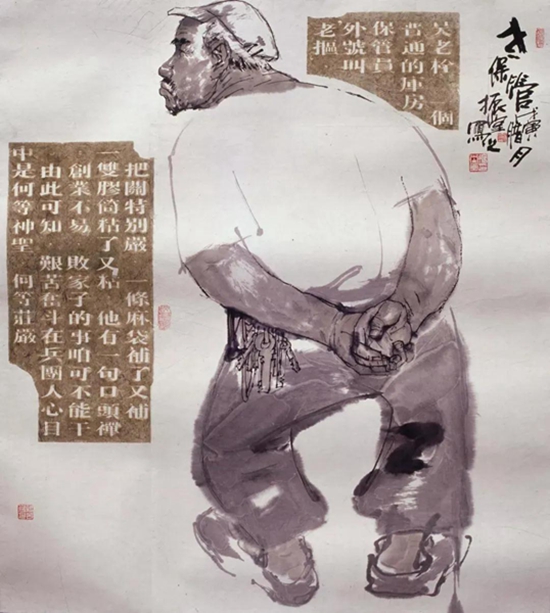 老保管
振堂寫之
吳老栓 一個
普通的庫房
保管員
外號叫
老摳
把關特別嚴 一條麻袋補了又補
一雙膠筒粘了又粘 他有一句口頭禪
創業不易 敗家子的事咱可不能干
由此可知 艱苦奮斗在兵團人心目
中是何等神聖 何等莊嚴